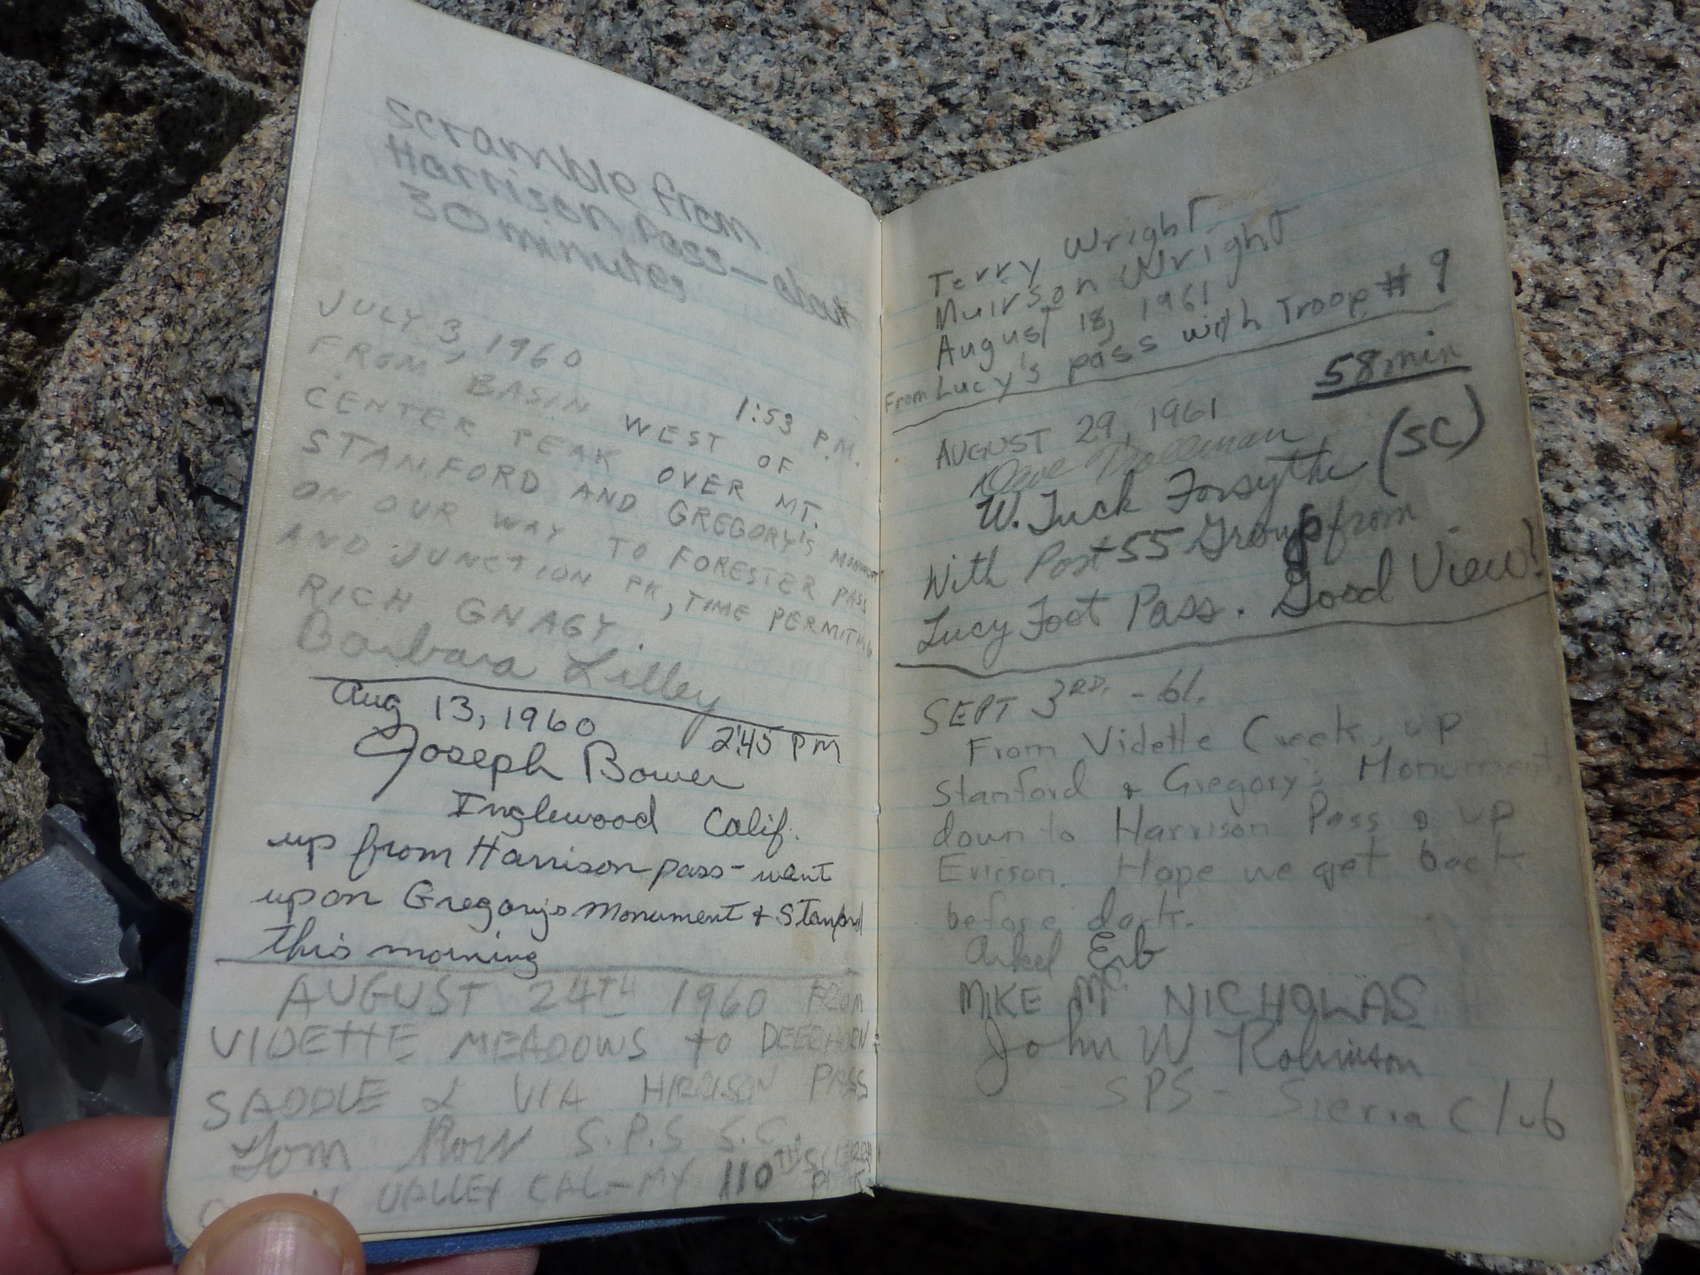 scramble from
Harrison Pass—about
30 minutes
JULY 3, 1960
1:53 P.M.
FROM BASIN WEST OF
CENTER PEAK OVER MT.
STANFORD AND GREGORY'S MONUMENT
ON OUR WAY TO FORESTER PASS
AND JUNCTION PK, TIME PERMITING
RICH GNAGY.
Barbara Lilley
Aug 13, 1960
2:45 PM
Joseph Bower
Inglewood Calif.
up from Harrison pass - went
upon Gregory's Monument & Stanford
this morning
AUGUST 24TH 1960 FROM
VIDETTE MEADOWS to DEERHORN
SADDLE & VIA HARRISON PASS
Tom S.P.S S.C.
VALLEY CAL-MY 110TH SIERRA PK
Terry Wright
Muirson Wright
August 18, 1961
From Lucy's pass with Troop # 9
58 min
AUGUST 29, 1961
Dave
W. Tuck Forsythe (SC)
With Post 55 Group from
Lucy Foot Pass. Good View!
SEPT 3RD. - 61.
From Vidette Creek, up
Stanford & Gregory's Monument,
down to Harrison Pass & up
Ericson. Hope we get back
before dark.
Arkel Erb
MIKE Mc NICHOLAS
John W Robinson
SPS - Sierra Club